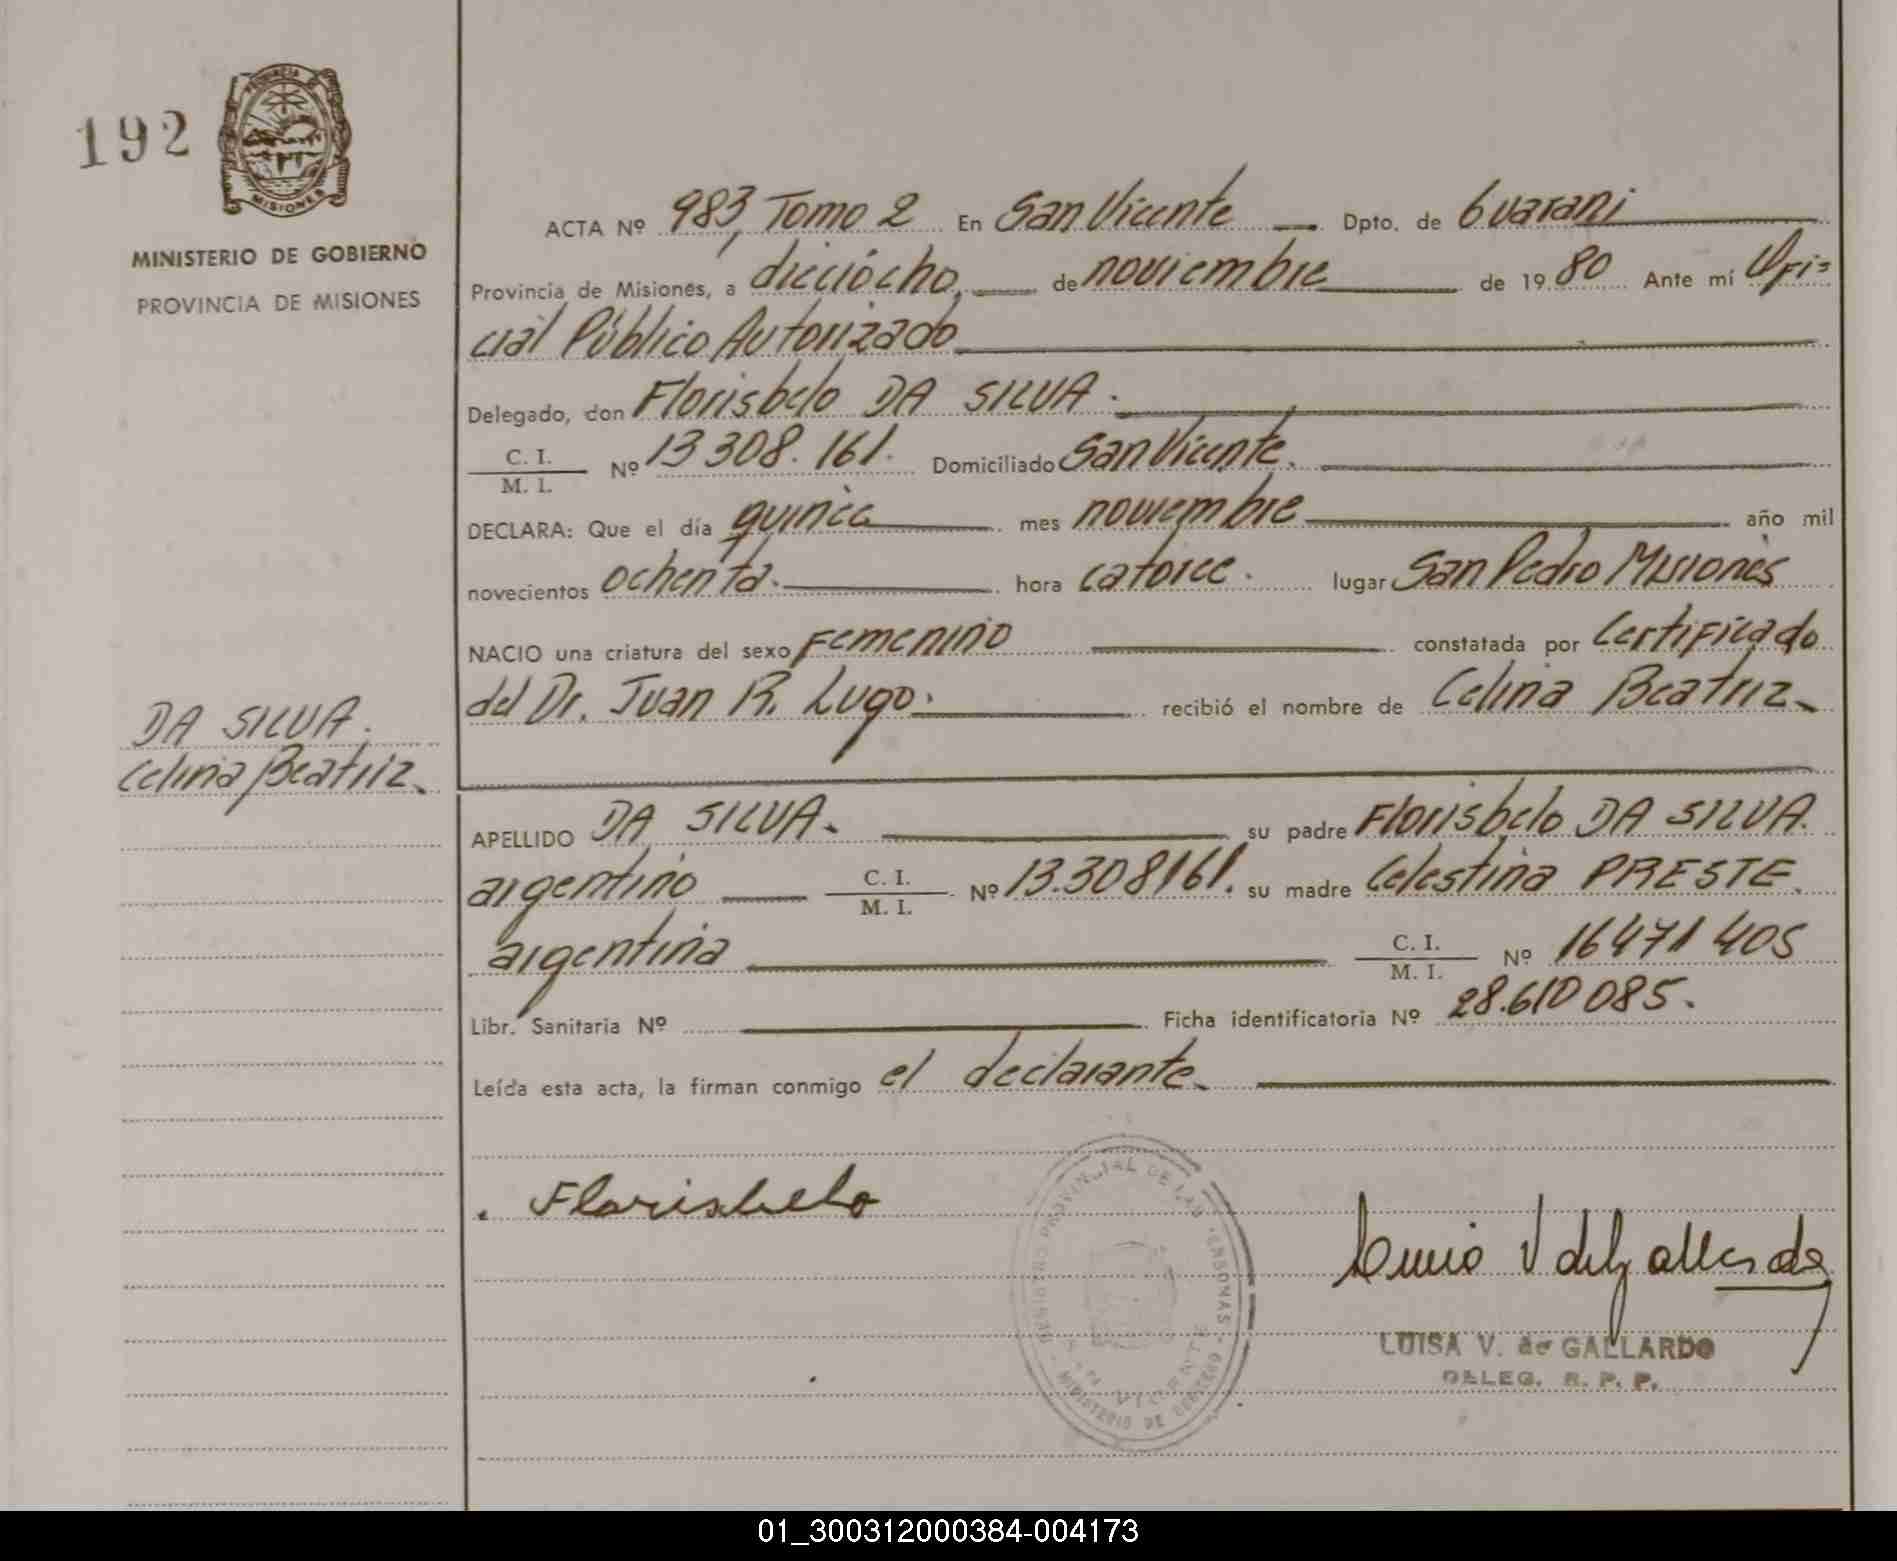 192
PROVINCIA DE
MISIONES
MINISTERIO DE GOBIERNO
PROVINCIA DE MISIONES
ACTA Nº 983, Tomo 2 En San Vicente Dpto. de Guarani
Provincia de Misiones, a dieciócho, de noviembre de 19 80 Ante mí Ofi=
cial Público Autorizado
Delegado, don Florisbelo DA SILVA.
C. I.
M. I. Nº 13 308. 161. Domiciliado San Vicente.
DECLARA: Que el día quince mes noviembre año mil
novecientos ochenta. hora catorce. lugar San Pedro Misiones
NACIO una criatura del sexo Femenino constatada por Certificado
del Dr. Juan R. Lugo. recibió el nombre de Celina Beatriz
DA SILVA.
Celina Beatriz
APELLIDO DA SILVA. su padre Florisbelo DA SILVA.
argentino C. I.
M. I. Nº 13.308161. su madre Celestina PRESTE
argentina C. I.
M. I. Nº 16471405
Libr. Sanitaria Nº Ficha identificatoria Nº 28.610085.
Leída esta acta, la firman conmigo el declarante
Florisbelo
REGISTRO PROVINCIAL DE LAS PERSONAS
SAN VICENTE
MINISTERIO DE GOBIERNO
LUISA V. de GALLARDO
DELEG. R. P. P.
01_300312000384-004173